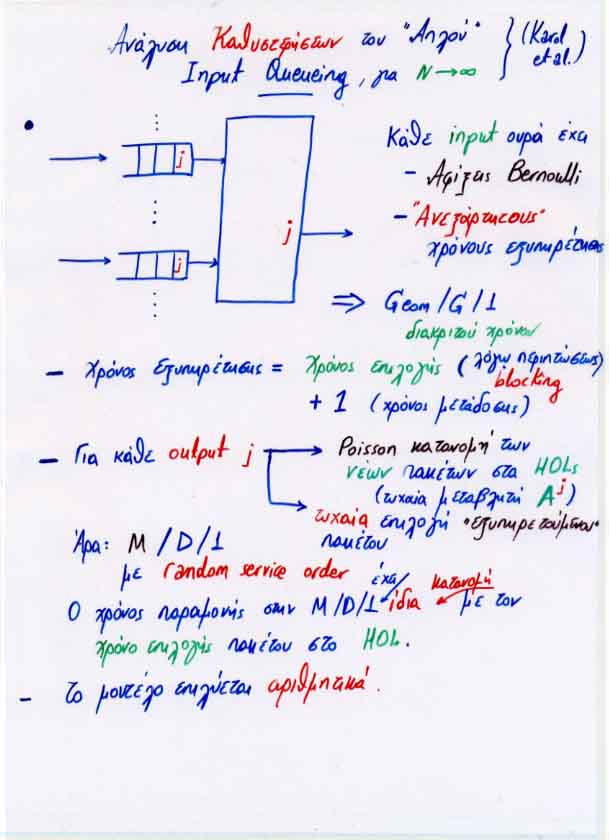 Ανάλυση Καθυστερήσεων του "Απλού" } (Karol
Input Queueing, για N → ∞ et al.)
Κάθε input ουρά έχει
j
- Αφίξεις Bernoulli
j
- "Ανεξάρτητους"
χρόνους εξυπηρέτησης
j
⇒ Geom/G/1
διακριτού χρόνου
- Χρόνος εξυπηρέτησης = Χρόνος επιλογής (λόγω περιπτώσεων)
blocking
+ 1 (χρόνος μετάδοσης)
- Για κάθε output j → Poisson κατανομή των
νέων πακέτων στα HOLs
(τυχαία μεταβλητή A^j)
→ τυχαία επιλογή "εξυπηρετούμενου"
πακέτου
Άρα: M/D/1
με random service order
Ο χρόνος παραμονής στην M/D/1 έχει ίδια κατανομή με τον
χρόνο επιλογής πακέτου στο HOL.
- Το μοντέλο επιλύεται αριθμητικά.